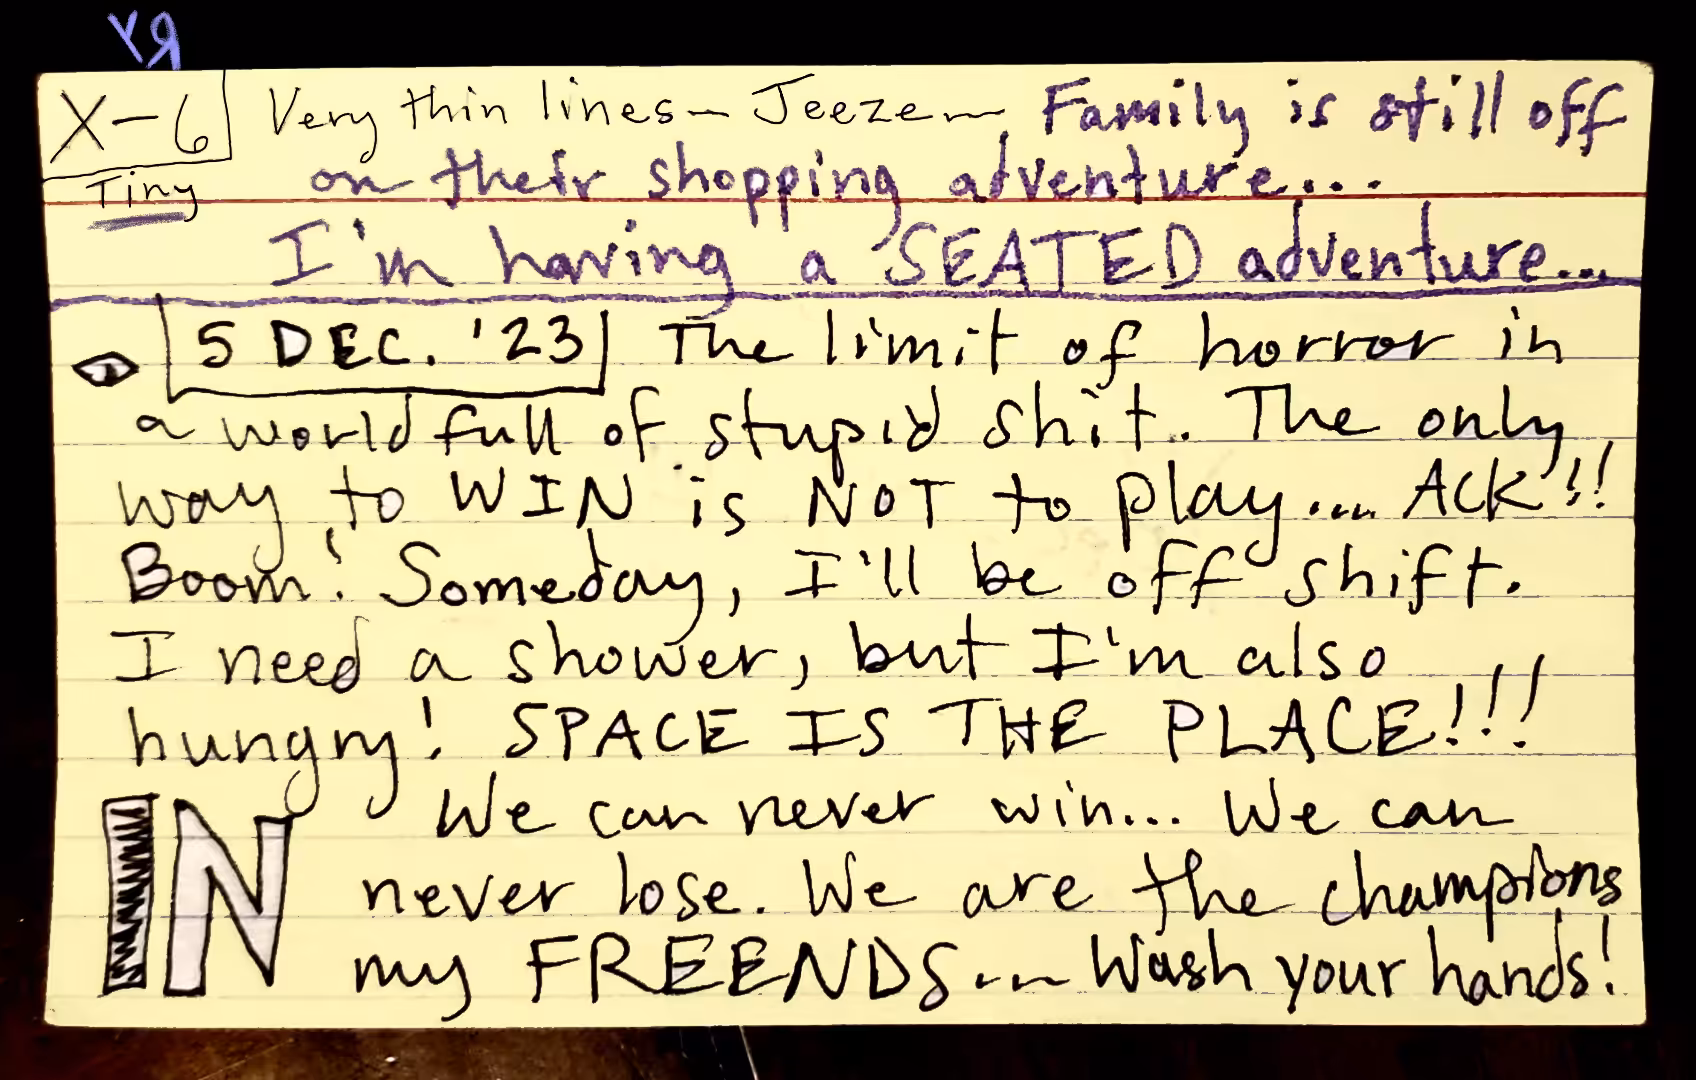 X-6 Very thin lines~ Jeeze~ Family is still off
Tiny on their shopping adventure...
I'm having a SEATED adventure...
5 DEC. '23 The limit of horror in
a world full of stupid shit. The only
way to WIN is NOT to play... ACK!!
Boom! Someday, I'll be off shift.
I need a shower, but I'm also
hungry! SPACE IS THE PLACE!!!
IN We can never win... We can
never lose. We are the champions
my FREENDS... Wash your hands!